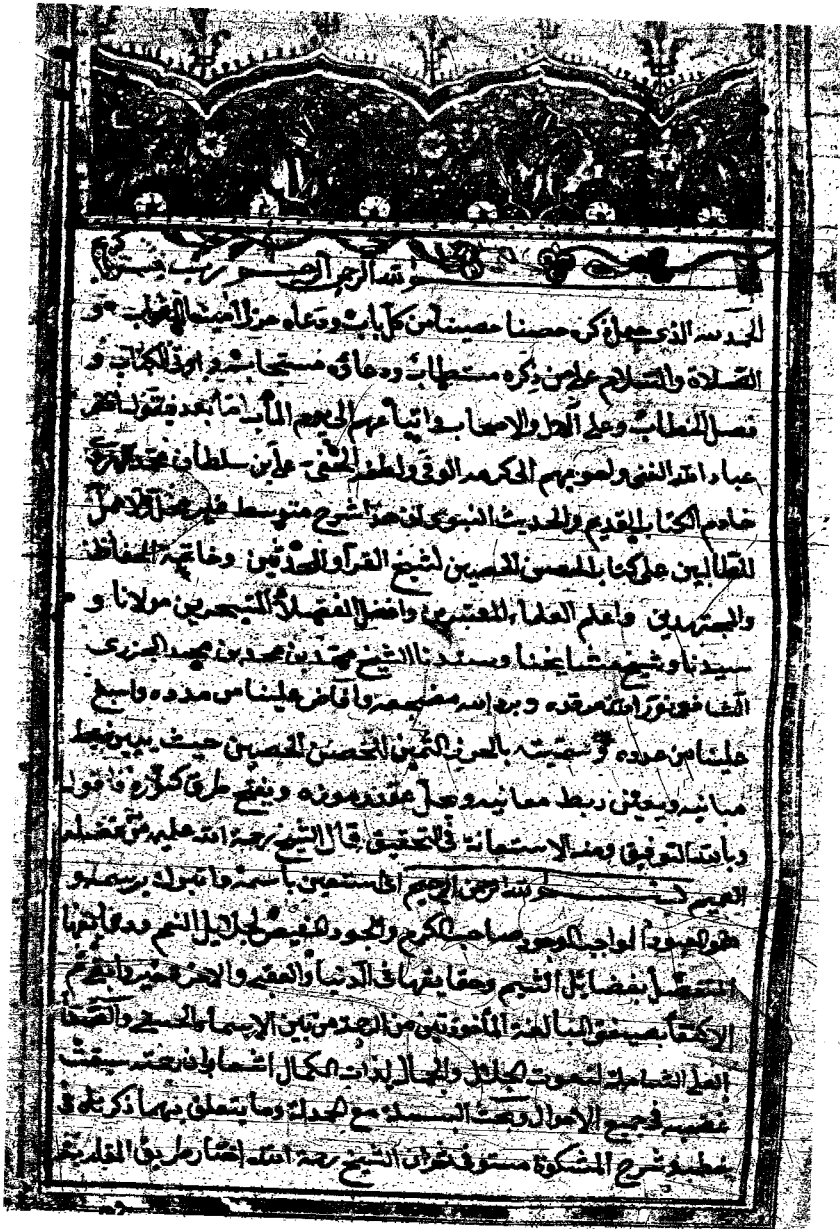 بسم الله الرحمن الرحيم رب
الحمد لله الذي جعل ذكره حصنا حصينا من كل باب ودعاه حرزا
الصلاة والسلام على من ذكره مستطاب ودعائه مستجاب وأوتي الكتاب و
فصل الخطاب وعلى الآل والاصحاب واتباعهم الى يوم المآب اما بعد فيقول افقر
عباد الله الغني واحوجهم الى كرمه الوفي ولطفه الخفي علي بن سلطان محمد الهروي
خادم الكتاب القديم والحديث النبوي ان هذا شرح متوسط غير مخل ولا ممل
للطالبين على كتاب الحصن الحصين لشيخ القراء والمحدثين وخاتمة الحفاظ
والمجتهدين واعلم العلماء المعتبرين وافضل الفضلاء المتبحرين مولانا و
سيدنا وشيخ مشايخنا وسندنا الشيخ محمد بن محمد بن محمد الجزري
الشافعي نور الله مرقده وبرد الله مضجعه وافاض علينا من مدده واسبغ
علينا من عدده وسميته بالحرز الثمين للحصن الحصين حيث يبين ضبط
مبانيه ويعتني ربط معانيه ويحل عقد رموزه ويفتح طرق كنوزه فاقول
وبالله التوفيق ومنه الاستعانة في التحقيق قال الشيخ رحمة الله عليه من فضله
العميم بسم الله الرحمن الرحيم اي استعين باسمه واتبرك برسمه و
هو المعبود الواجب الوجود صاحب الكرم والجود المفيض لجلايل النعم ودقائقها
المتفضل بفضايل الشيم وحقايقها في الدنيا والعقبى والاخرة
الاكتفاء بصيغتي المبالغة المأخوذتين من الرحمة من بين الاسماء الحسنى والصفات
العلى الشاملة لنعوت الجلال والجمال لذات الكمال اشعار بان رحمته سبقت
غضبه في جميع الاحوال وبحث البسملة مع الحمدلة وما يتعلق بهما ذكرناه في
شرح المشكوة مستوفى ثم ان الشيخ رحمه الله اختار طريق